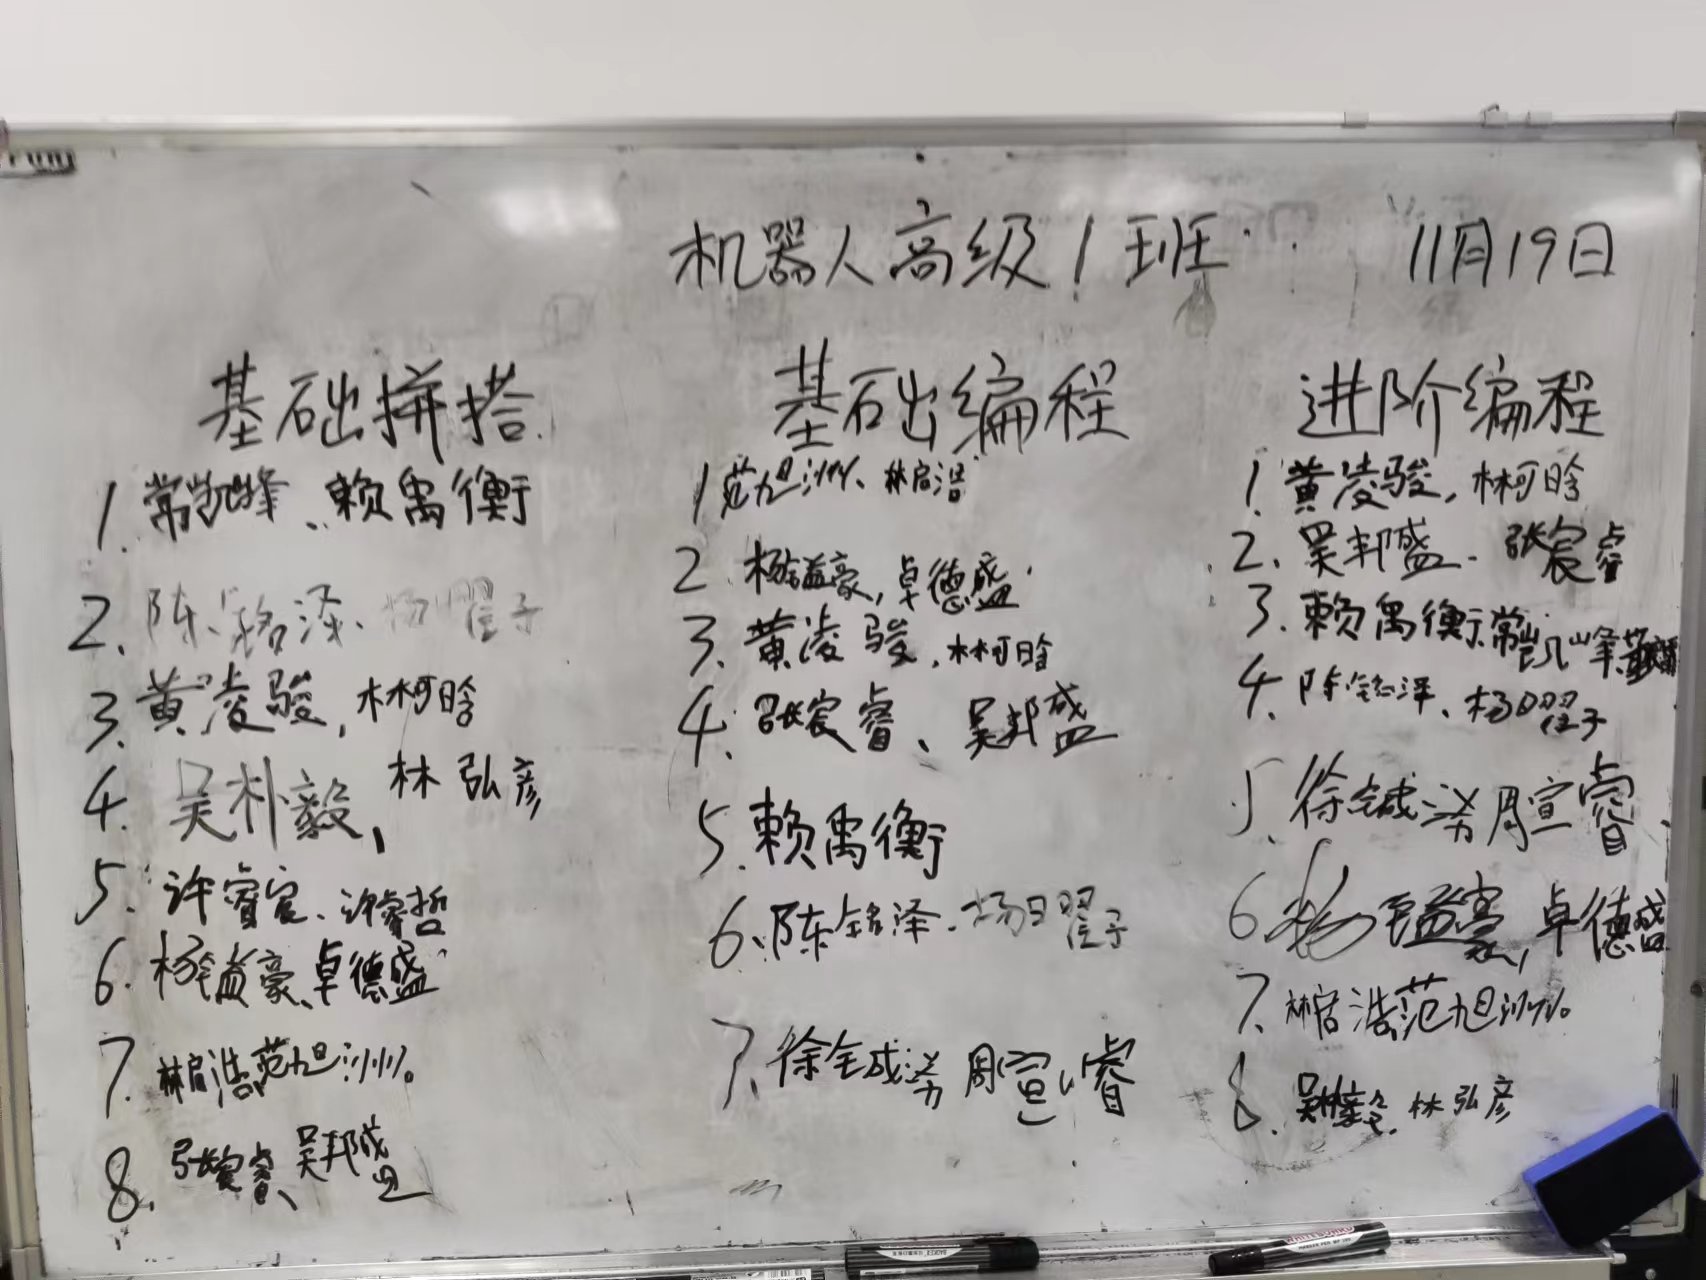 机器人高级1班 11月19日
基础拼搭
1. 常凯峰、赖禹衡
2. 陈铭泽、杨曌子
3. 黄凌骏, 林柯晗
4. 吴朴毅, 林弘彦
5. 许睿宸、许睿哲
6. 杨镒豪、卓德盛
7. 林启浩范旭洲。
8. 张宸睿、吴邦盛
基础编程
1 范旭洲、林启浩
2 杨镒豪, 卓德盛
3. 黄凌骏, 林柯晗
4. 张宸睿、吴邦盛
5. 赖禹衡
6、陈铭泽、杨曌子
7、徐铖涝 周宣睿
进阶编程
1. 黄凌骏, 林柯晗
2. 吴邦盛、张宸睿
3. 赖禹衡、常凯峰
4. 陈铭泽、杨曌子
5、徐铖涝 周宣睿
6 杨镒豪, 卓德盛
7、林启浩范旭洲。
8. 吴朴毅, 林弘彦